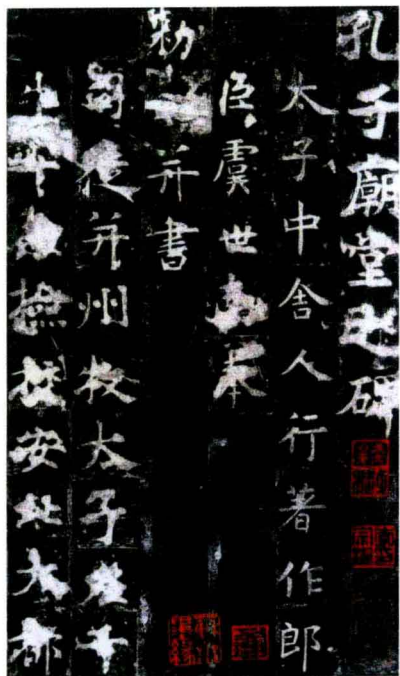 孔子廟堂之碑
太子中舍人行著作郎
臣虞世南奉
勑撰并書
司徒并州牧太子左千
牛率兼撿挍安北大都